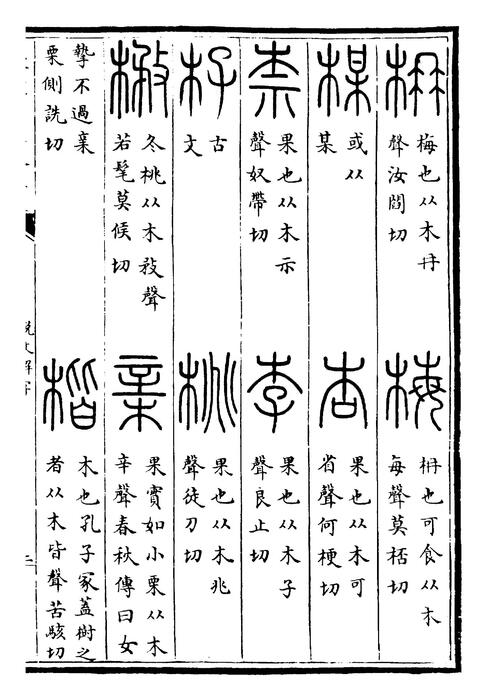 柟 梅也从木冄
聲汝閻切
梅 枏也可食从木
每聲莫桮切
楳 或从
某
杏 果也从木可
省聲何梗切
柰 果也从木示
聲奴帶切
李 果也从木子
聲良止切
杍 古
文
桃 果也从木兆
聲徒刀切
㮘 冬桃从木敄聲
若髦莫候切
亲 果實如小栗从木
辛聲春秋傳曰女
摯不過亲
栗側詵切
楷 木也孔子冢蓋樹之
者从木皆聲苦駭切